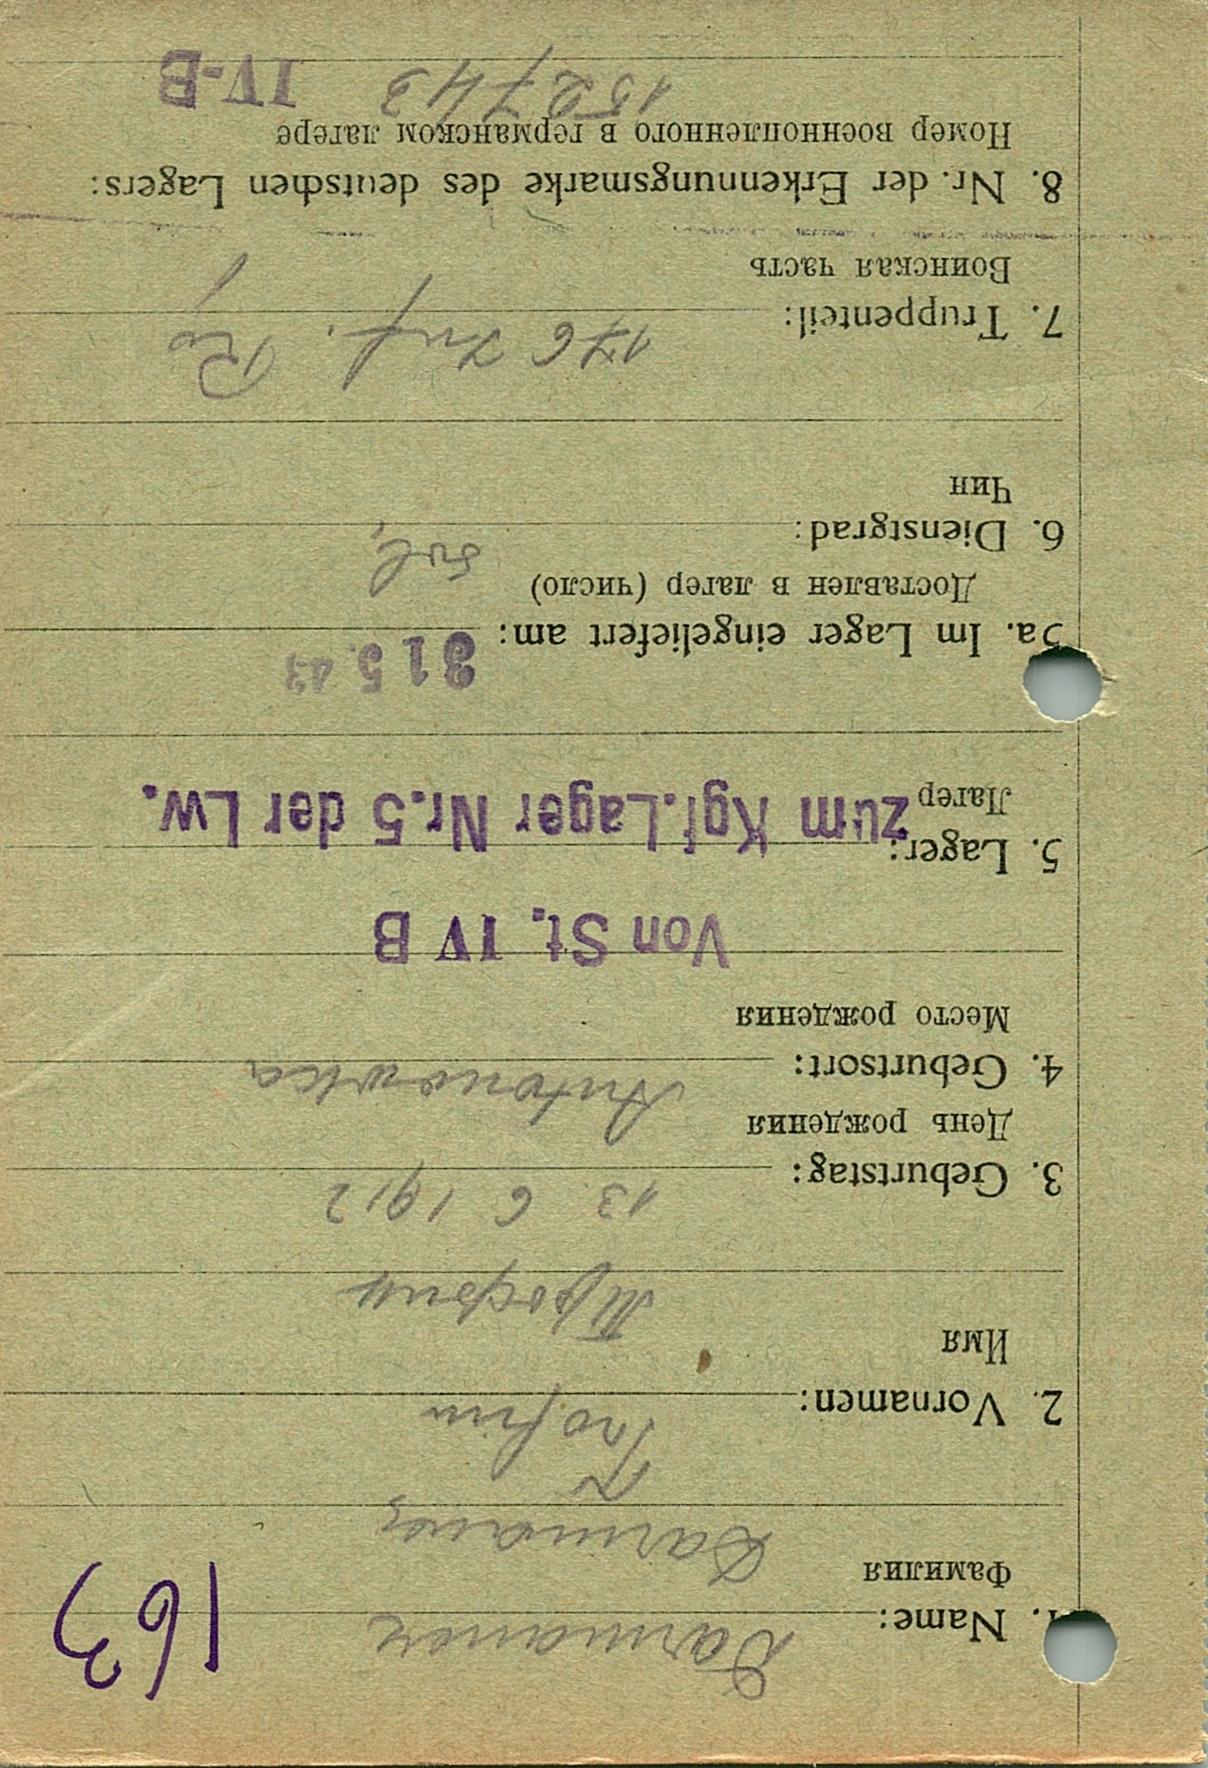 163
1. Name:
Фамилия
2. Vornamen:
Trofim
Имя
Трофим
3. Geburtstag: 13. 6 1912
День рождения
4. Geburtsort: Antonowka
Место рождения
Von St. IV B
5. Lager:
Лагер zum Kgf.Lager Nr.5 der Lw.
5a. Im Lager eingeliefert am: 31 5. 43
Доставлен в лагер (число)
6. Dienstgrad: Sol,
Чин
7. Truppenteil: 176 Inf.
Воинская часть
8. Nr. der Erkennungsmarke des deutschen Lagers:
Номер военнопленного в германском лагере
152743 IV-B